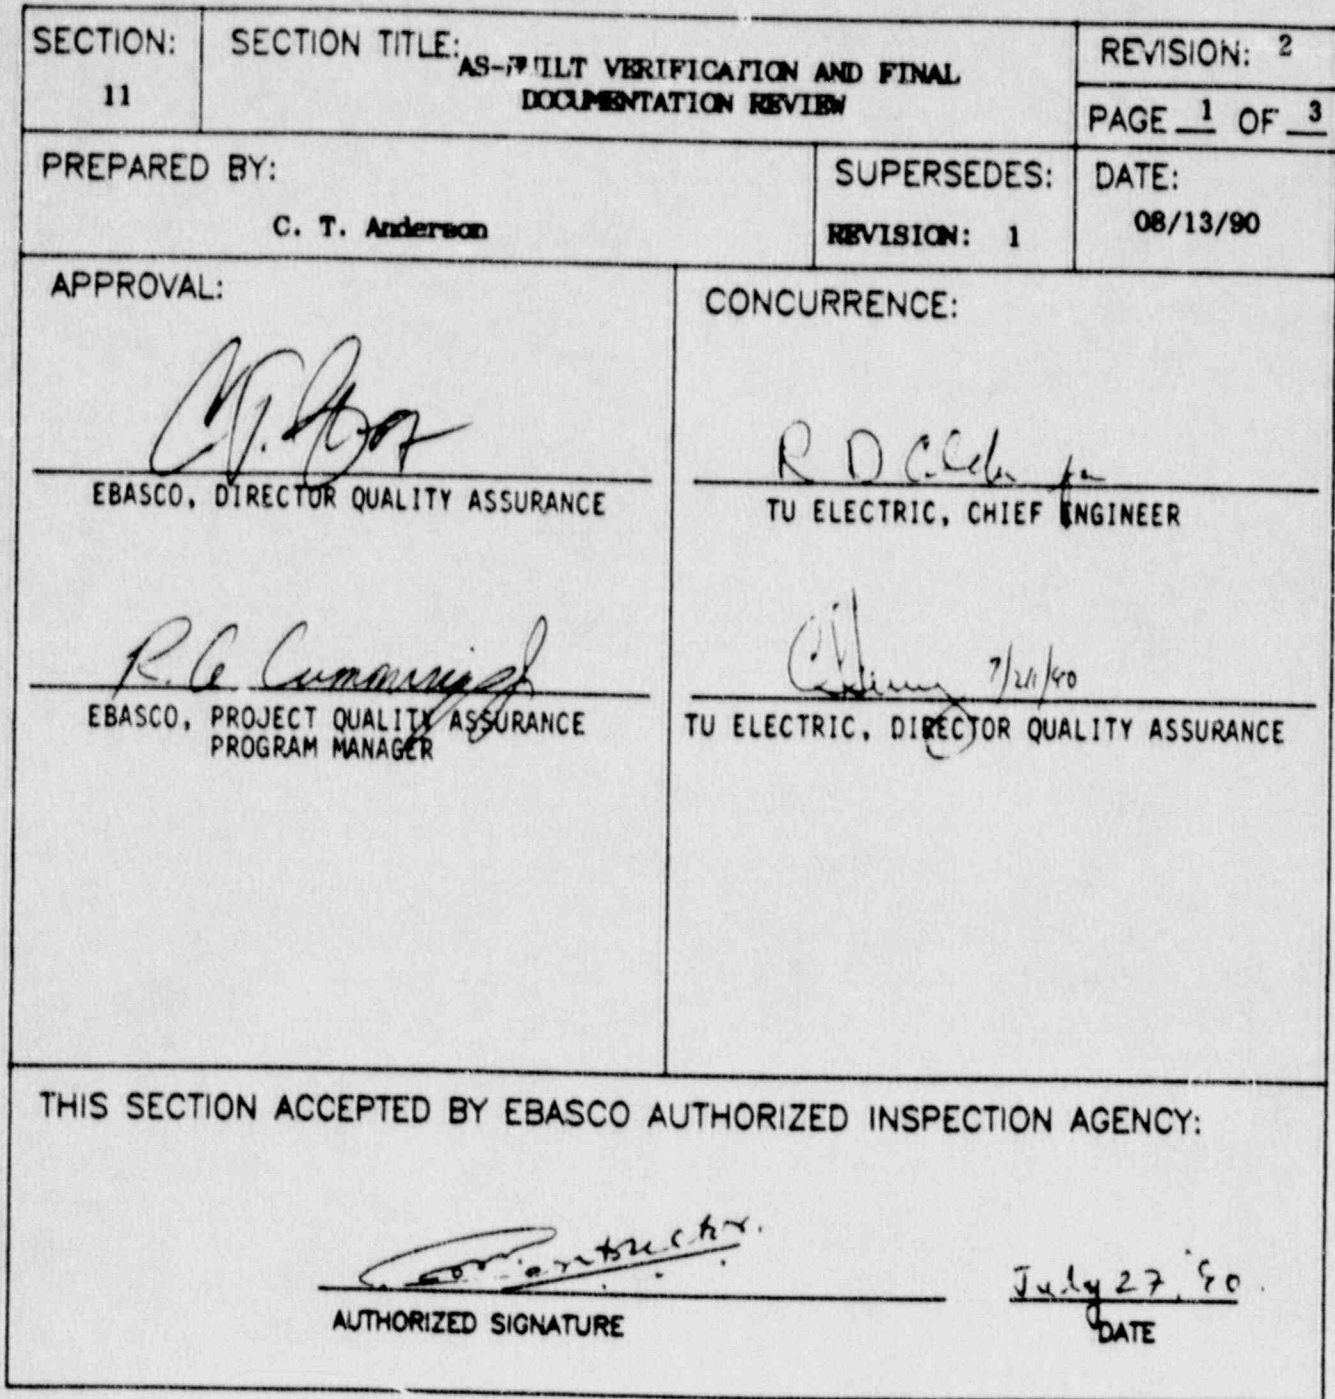 SECTION:
11
SECTION TITLE:
AS-BUILT VERIFICATION AND FINAL
DOCUMENTATION REVIEW
REVISION: 2
PAGE 1 OF 3
PREPARED BY:
C. T. Anderson
SUPERSEDES:
REVISION: 1
DATE:
08/13/90
APPROVAL:
EBASCO, DIRECTOR QUALITY ASSURANCE
R. A. Cummings
EBASCO, PROJECT QUALITY ASSURANCE
PROGRAM MANAGER
CONCURRENCE:
R D
TU ELECTRIC, CHIEF ENGINEER
TU ELECTRIC, DIRECTOR QUALITY ASSURANCE
THIS SECTION ACCEPTED BY EBASCO AUTHORIZED INSPECTION AGENCY:
AUTHORIZED SIGNATURE
July 27, '90.
DATE